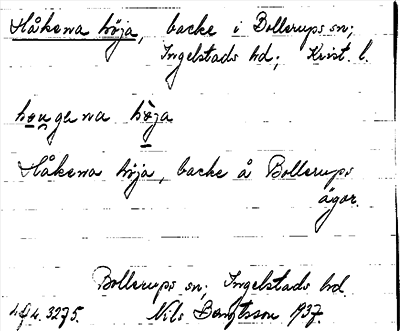 Håkena höja, backe i Bollerups sn;
Ingelstads hd; Krist. l.
hougena höja
Håkena höja, backe å Bollerups
ägor.
Bollerups sn; Ingelstads hd.
Nils Bengtsson 1937